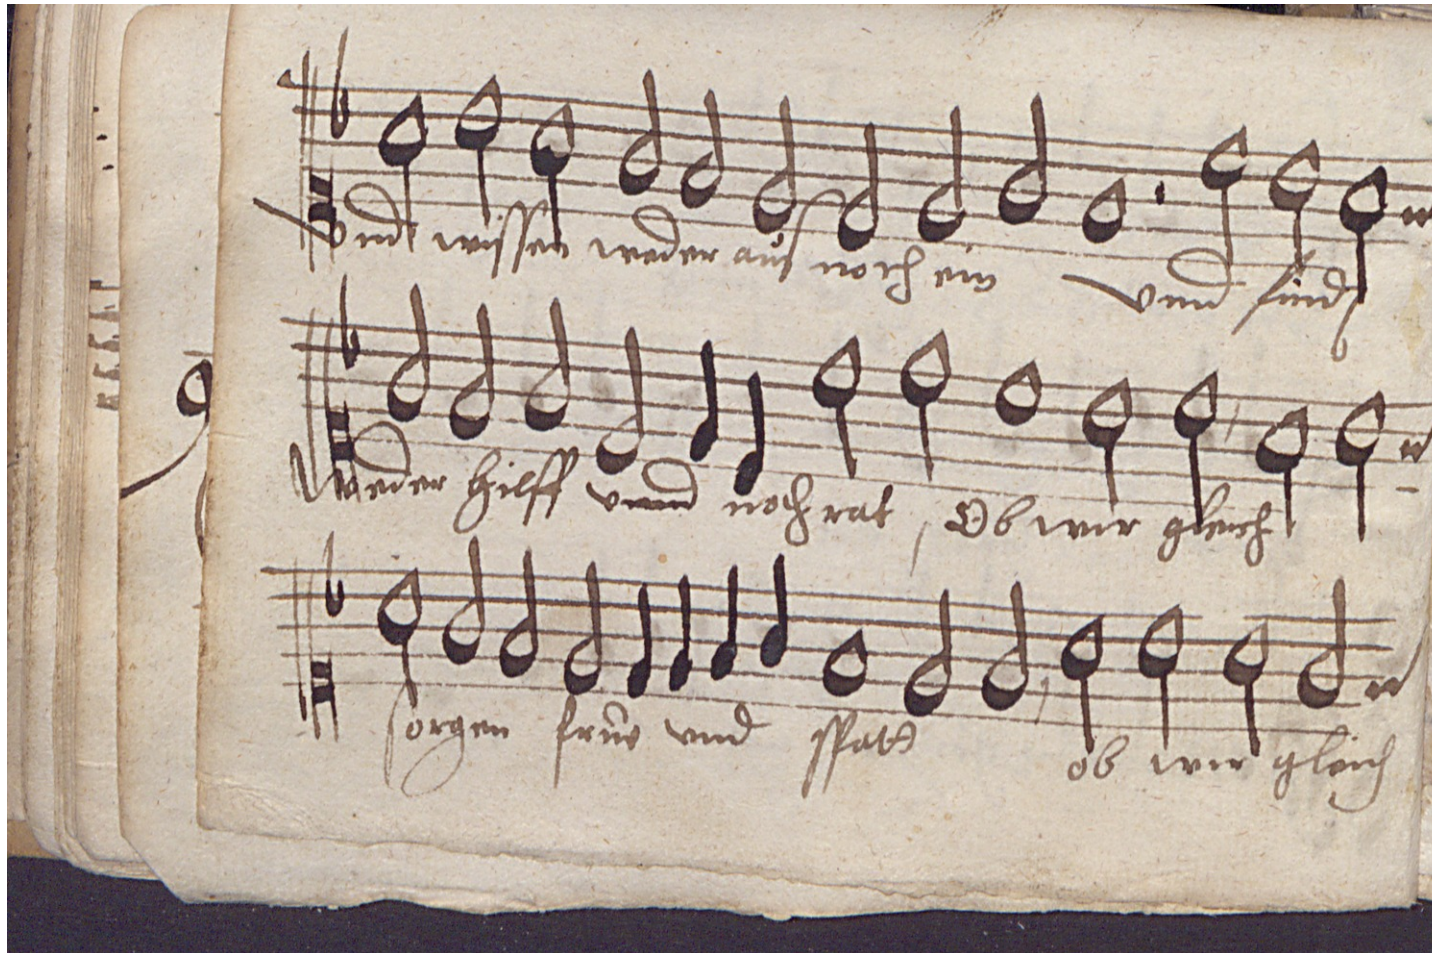 Vnd wissen weder aus noch ein vnnd sind
Weder hilff vnnd noch rat Ob wir gleich
sorgen frue vnd spatt ob wir gleich